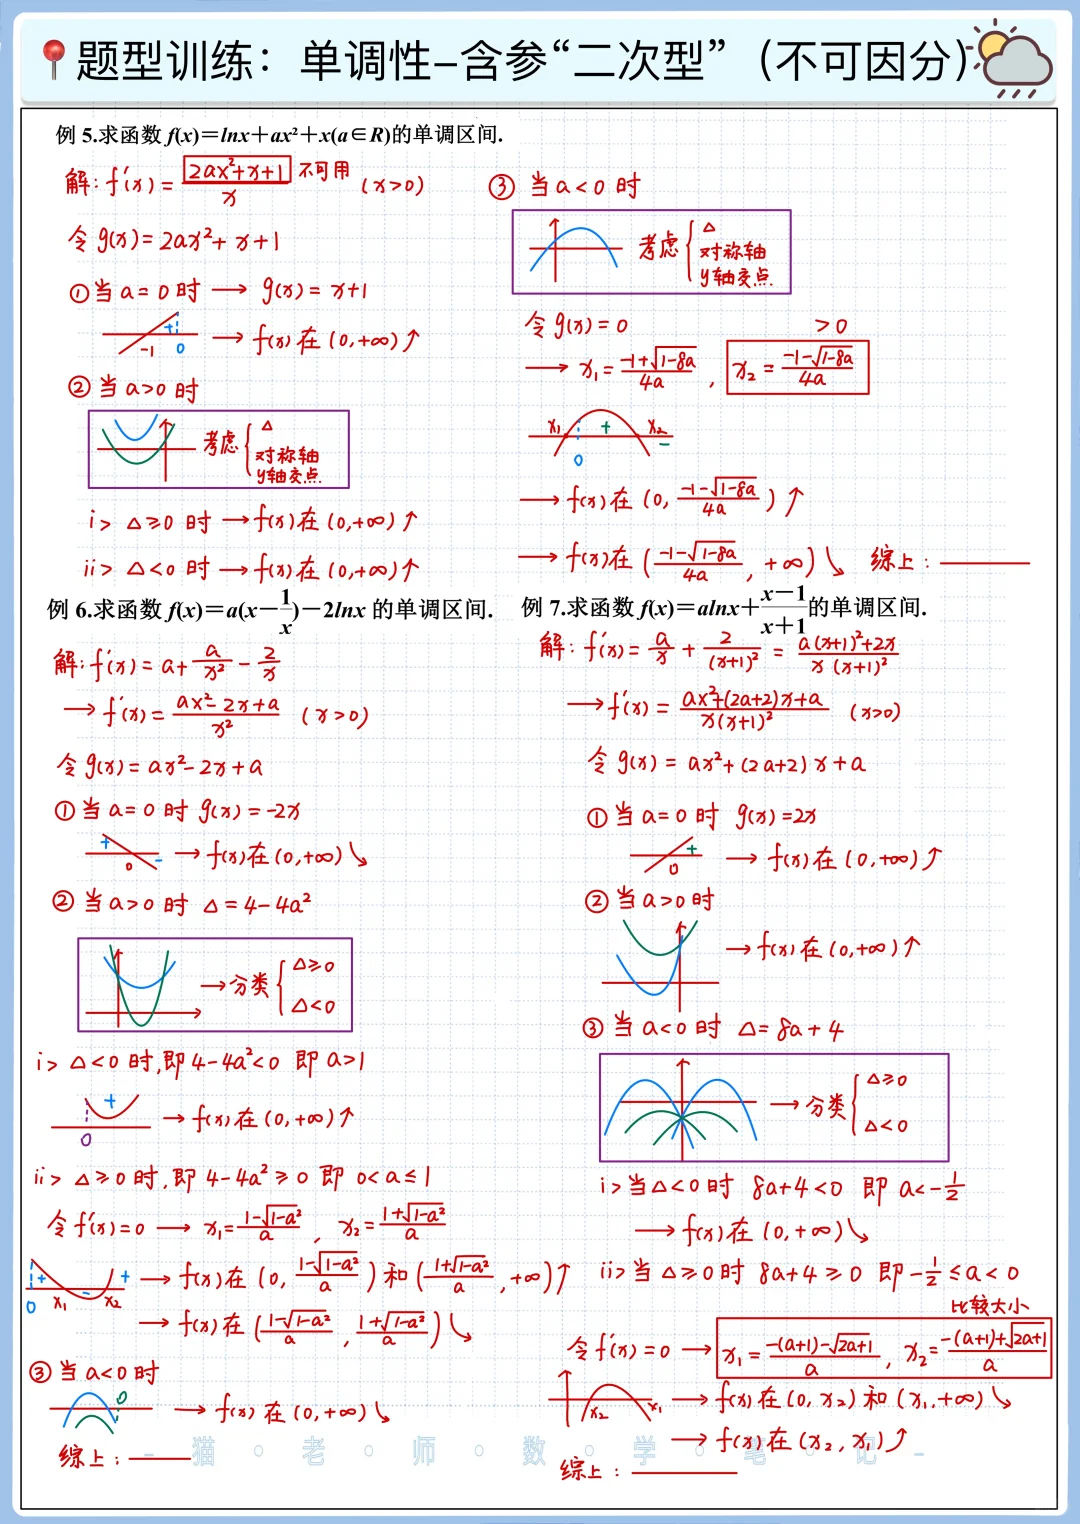 题型训练：单调性-含参“二次型”（不可因分）
例 5.求函数 f(x)＝lnx＋ax²＋x(a∈R)的单调区间.
解: f′(x) = (2ax²+x+1)/x 不可用 (x>0)
令 g(x) = 2ax²+x+1
① 当 a=0 时 → g(x) = x+1
+ -1 0 → f(x) 在 (0,+∞)↑
② 当 a>0 时
考虑 { △ 对称轴 y轴交点...
i> △≥0 时 → f(x) 在 (0,+∞)↑
ii> △<0 时 → f(x) 在 (0,+∞)↑
③ 当 a<0 时
考虑 { △ 对称轴 y轴交点...
令 g(x) = 0 >0
→ x₁ = (-1+√(1-8a))/4a , x₂ = (-1-√(1-8a))/4a
x₁ + x₂ - 0
→ f(x) 在 (0, (-1-√(1-8a))/4a ) ↑
→ f(x) 在 ( (-1-√(1-8a))/4a , +∞) ↘ 综上:
例 6.求函数 f(x)＝a(x－1/x)－2lnx 的单调区间.
解: f′(x) = a + a/x² - 2/x
→ f′(x) = (ax²-2x+a)/x² (x>0)
令 g(x) = ax²-2x+a
① 当 a=0 时 g(x) = -2x
+ 0 - → f(x) 在 (0,+∞)↘
② 当 a>0 时 △ = 4-4a²
→ 分类 { △≥0 △<0
i> △<0 时,即 4-4a²<0 即 a>1
+ 0 → f(x) 在 (0,+∞)↑
ii> △≥0 时,即 4-4a²≥0 即 0<a≤1
令 f′(x)=0 → x₁ = (1-√(1-a²))/a , x₂ = (1+√(1-a²))/a
+ - + 0 x₁ x₂ → f(x) 在 (0, (1-√(1-a²))/a ) 和 ( (1+√(1-a²))/a , +∞)↑
→ f(x) 在 ( (1-√(1-a²))/a , (1+√(1-a²))/a ) ↘
③ 当 a<0 时
0 → f(x) 在 (0,+∞)↘
综上:
例 7.求函数 f(x)＝alnx＋(x－1)/(x＋1)的单调区间.
解: f′(x) = a/x + 2/(x+1)² = (a(x+1)²+2x)/(x(x+1)²)
→ f′(x) = (ax²+(2a+2)x+a)/(x(x+1)²) (x>0)
令 g(x) = ax²+(2a+2)x+a
① 当 a=0 时 g(x)=2x
+ 0 → f(x) 在 (0,+∞)↑
② 当 a>0 时
→ f(x) 在 (0,+∞)↑
③ 当 a<0 时 △ = 8a+4
→ 分类 { △≥0 △<0
i> 当 △<0 时 8a+4<0 即 a<-1/2
→ f(x) 在 (0,+∞)↘
ii> 当 △≥0 时 8a+4≥0 即 -1/2≤a<0
比较大小
令 f′(x)=0 → x₁ = (-(a+1)-√(2a+1))/a , x₂ = (-(a+1)+√(2a+1))/a
x₂ x₁ → f(x) 在 (0, x₂) 和 (x₁,+∞)↘
→ f(x) 在 (x₂, x₁)↑
综上:
- 猫 · 老 · 师 · 数 · 学 · 笔 · 记 -